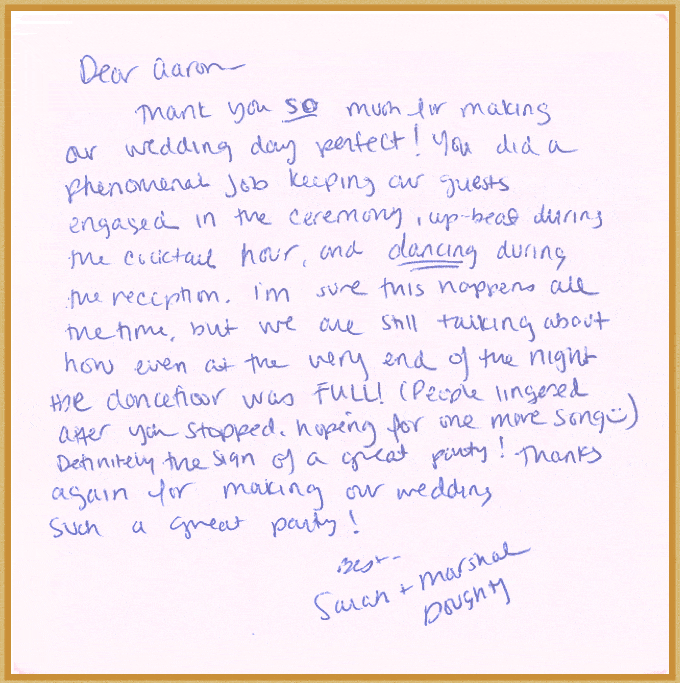 Dear Aaron—
Thank you so much for making
our wedding day perfect! You did a
phenomenal job keeping our guests
engaged in the ceremony, up-beat during
the cocktail hour, and dancing during
the reception. I'm sure this happens all
the time, but we are still talking about
how even at the very end of the night
the dancefloor was FULL! (People lingered
after you stopped, hoping for one more song☺)
Definitely the sign of a great party! Thanks
again for making our wedding
such a great party!
Best--
Sarah + Marshal
Doughty